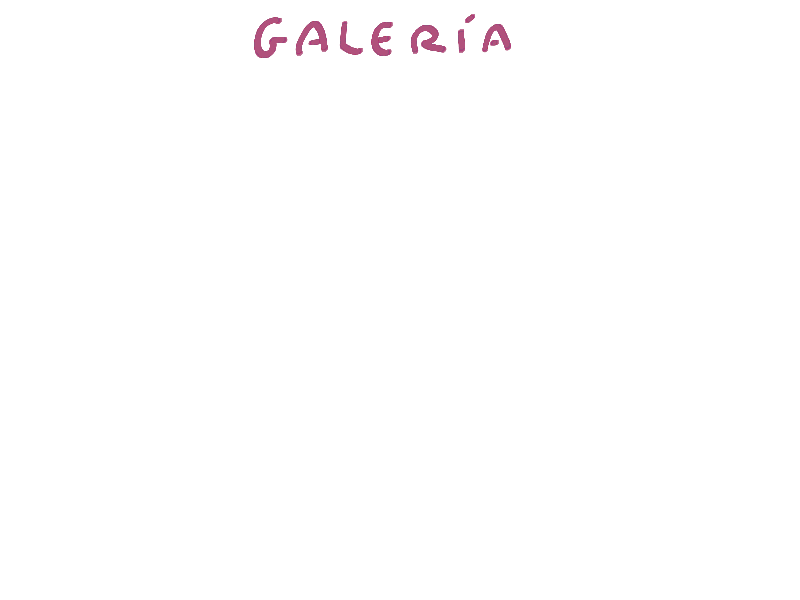 GALERÍA